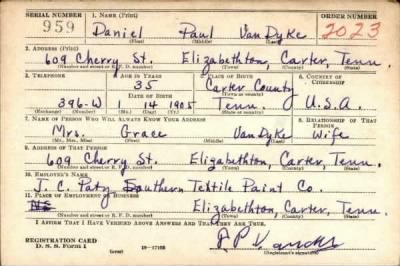 SERIAL NUMBER 1. NAME (Print) ORDER NUMBER
959 Daniel Paul VanDyke 2023
(First) (Middle) (Last)
2. ADDRESS (Print)
609 Cherry St. Elizabethton, Carter, Tenn.
(Number and street or R. F. D. number) (Town) (County) (State)
3. TELEPHONE 4. AGE IN YEARS 5. PLACE OF BIRTH 6. COUNTRY OF CITIZENSHIP
35 Carter County
DATE OF BIRTH
396-W 1 14 1905 Tenn. U.S.A.
7. NAME OF PERSON WHO WILL ALWAYS KNOW YOUR ADDRESS 8. RELATIONSHIP OF THAT PERSON
Mrs. Grace VanDyke Wife
(Mr., Mrs., Miss) (First) (Middle) (Last)
9. ADDRESS OF THAT PERSON
609 Cherry St. Elizabethton, Carter, Tenn.
(Number and street or R. F. D. number) (Town) (County) (State)
10. EMPLOYER'S NAME
J. C. Paty Southern Textile Paint Co.
11. PLACE OF EMPLOYMENT OR BUSINESS
Elizabethton, Carter, Tenn.
(Number and street or R. F. D. number) (Town) (County) (State)
I AFFIRM THAT I HAVE VERIFIED ABOVE ANSWERS AND THAT THEY ARE TRUE.
REGISTRATION CARD
D. S. S. Form 1 (over) (Registrant's signature)